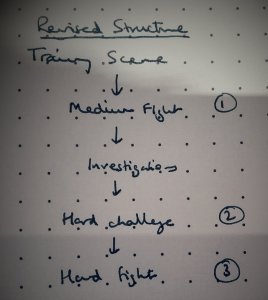 Revised Structure
Training Scene
↓
Medium Fight ①
↓
Investigations
↓
Hard challenge ②
↓
Hard fight ③